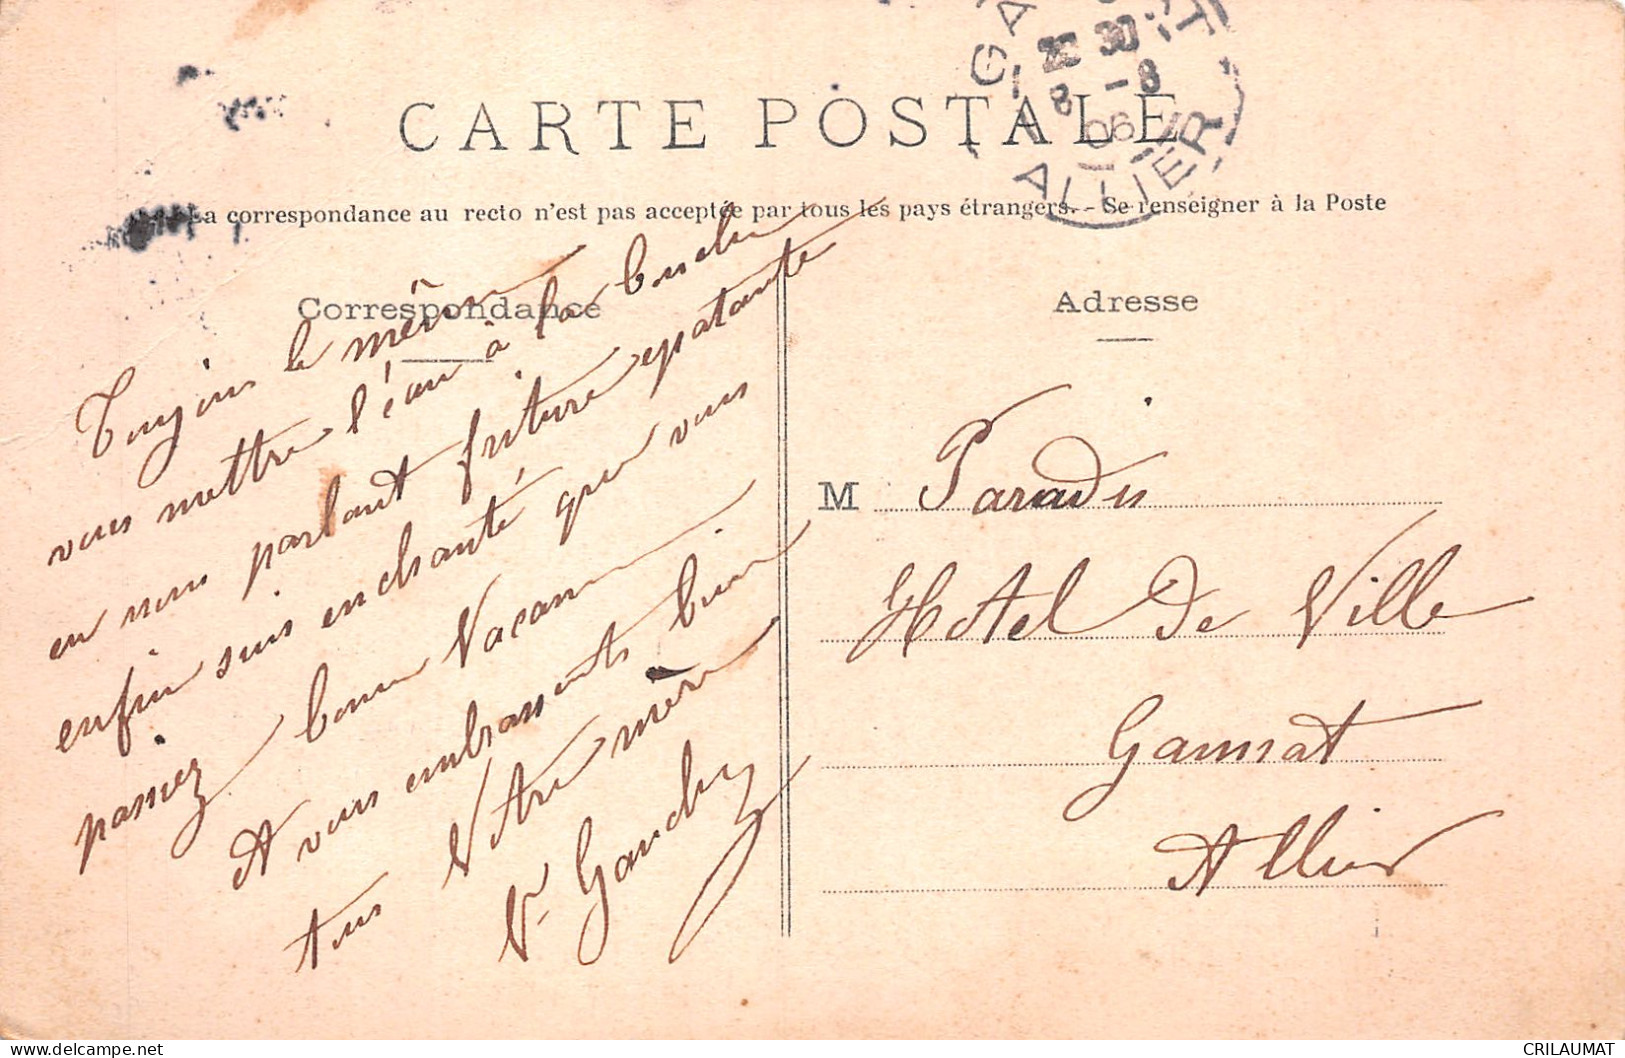 CARTE POSTALE
GA
22 30
8 - 8
06
ALLIER
La correspondance au recto n'est pas acceptée par tous les pays étrangers. - Se renseigner à la Poste
Correspondance
Toujours le même
vous mettre l'eau à la bouche
en nous parlant friture epatante
enfin suis enchanté que vous
passiez bonne Vacan
A vous embrassant bien
tous Votre mère
V. Gaudry
Adresse
M Paradis
Hotel De Ville
Gannat
Allier
CRILAUMAT